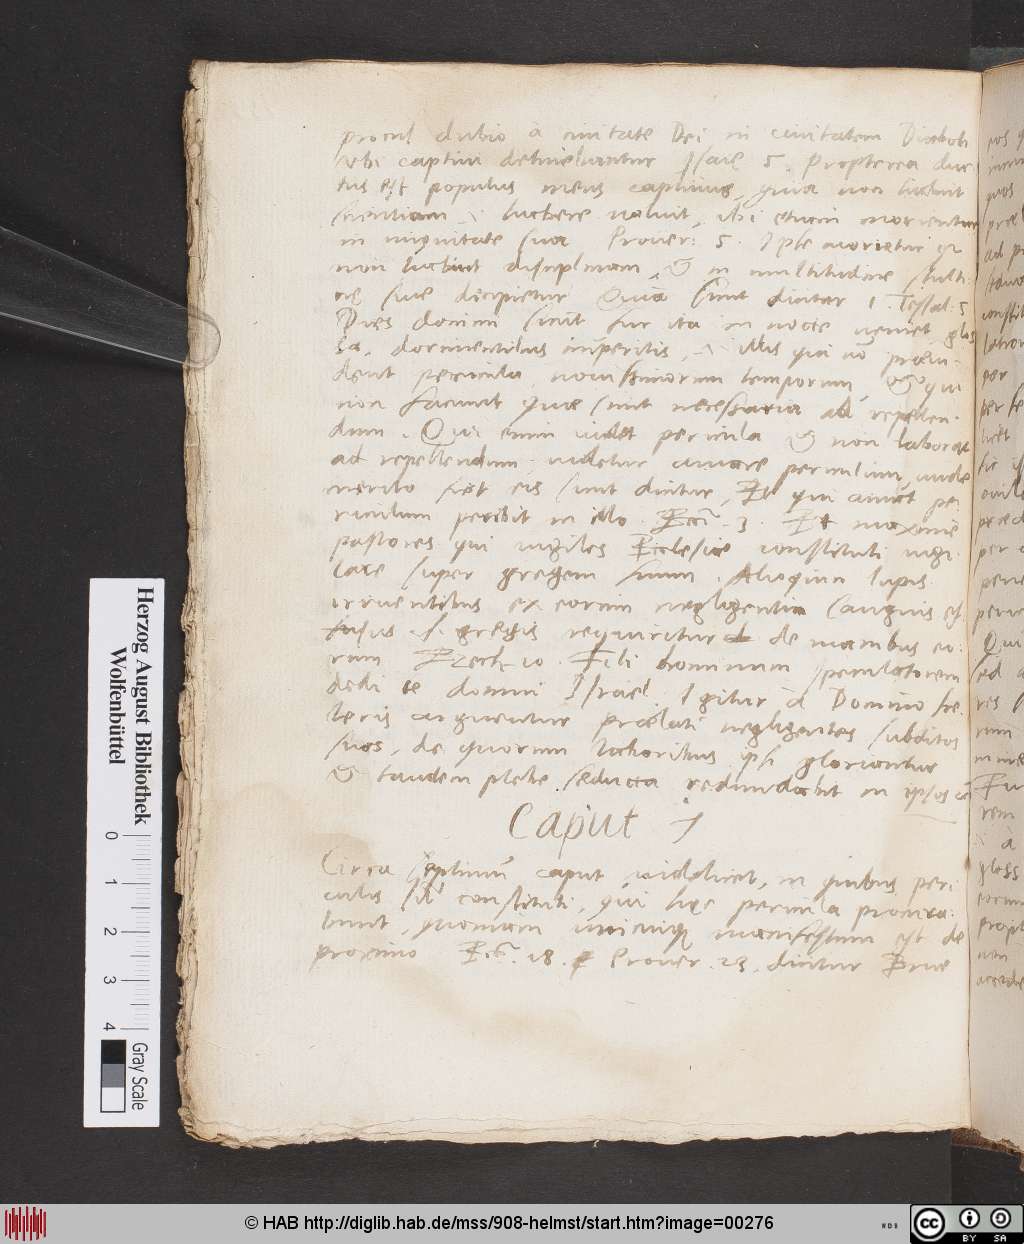 procul dubio à civitate Dei in civitatem Diaboli
ubi captivi detinebuntur Isaię 5. Propterea duc
tus est populus meus captivus, quia non habuit
scientiam .i. habere noluit, ibi etiam morientur
in iniquitate sua Prover: 5. Ipse morietur qa
non habuit disciplinam, & in multitudine stulti
cię suę decipietur Quia sicut dicitur 1 Tessal: 5
Dies domini sicut fur ita in nocte veniet glos
sa, dormientibus imperitis, .i. illis qui nō prævi-
dent pericula novissimorum temporum, qui
non faciunt quæ sunt necessaria ad repellen-
dum. Qui enim videt pericula & non laborat
ad repellendum, videtur amare periculum, unde
merito fiet eis sicut dicitur, Et qui amat pe
riculum peribit in illo Ecci. 3. Et maximè
pastores qui vigiles Ecclesiæ constituti vigi-
lare super gregem suum. Alioquin lupis
irruentibus ex eorum negligentia sanguis est
fusus .s. gregis requiritur de manibus eo:
rum Ezech. 10. Fili hominum speculatorem
dedi te domui Israel. Igitur à Domino ce-
teris arguentur prælati negligentes subditos
suos, de quorum laboribus ipsi gloriantur
& tandem plebe seducta redundabit in ipsos
Caput 7
Circa septimū caput videlicet, in quibus peri
culis sūt constituti, qui hæc pericula procura-
bunt, quoniam unicuiq manifestum est de
proximo Ecc. 18. & Prover. 23. dicitur Erue
Herzog August Bibliothek
Wolfenbüttel
0 1 2 3 4
Gray Scale
© HAB http://diglib.hab.de/mss/908-helmst/start.htm?image=00276
WDB
cc BY SA